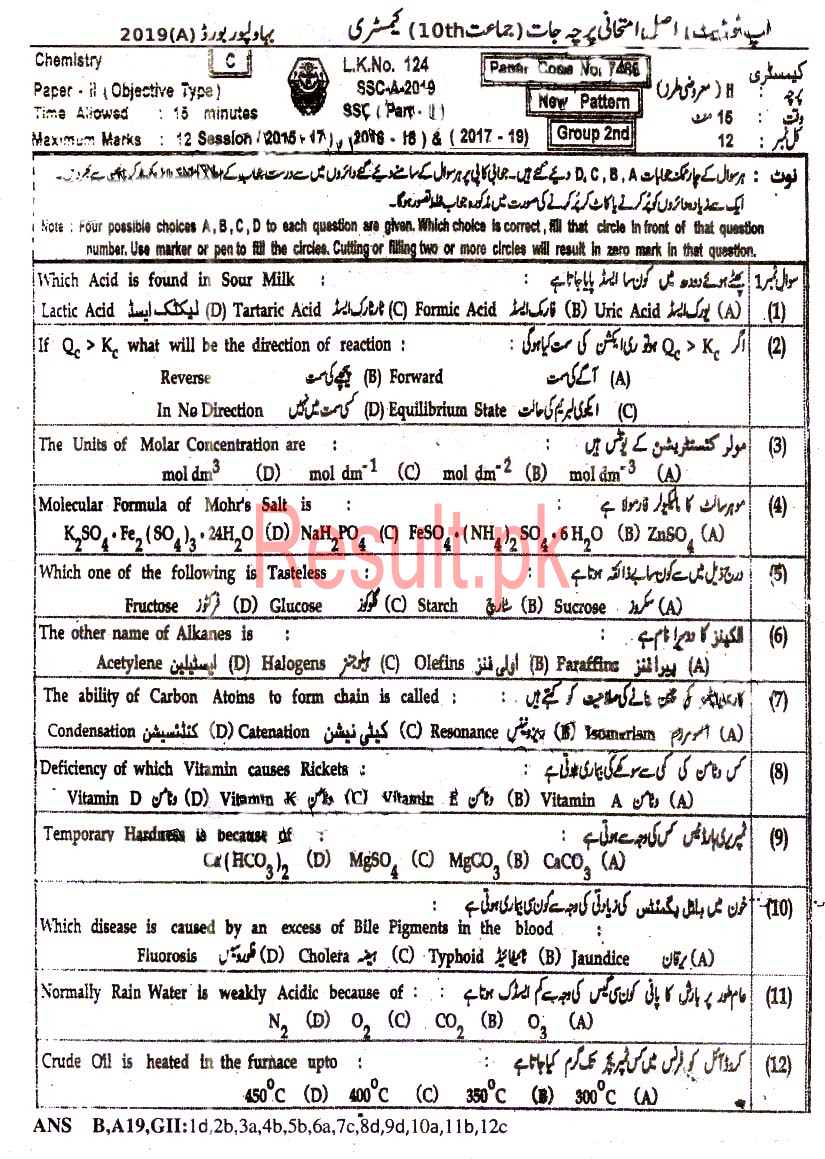 اپ ٹو ڈیٹ، اصل امتحانی پرچہ جات (جماعت 10th) کیمسٹری بہاولپور بورڈ 2019(A)
Chemistry C L.K.No. 124 Paper Code No. 7486 کیمسٹری
Paper - II (Objective Type) SSC-A-2019 New Pattern پرچہ II (معروضی طرز)
Time Allowed : 15 minutes SSC (Part - II) وقت : 15 منٹ
Maximum Marks : 12 Session (2015 - 17), (2016 - 18) & (2017 - 19) Group 2nd کل نمبر : 12
نوٹ : ہر سوال کے چار ممکنہ جوابات D, C, B, A دیے گئے ہیں۔ جوابی کاپی پر ہر سوال کے سامنے دیے گئے دائروں میں سے درست جواب کے
ایک سے زیادہ دائروں کو پُر کرنے یا کاٹ کر پُر کرنے کی صورت میں مذکورہ جواب غلط تصور ہوگا۔
Note : Four possible choices A, B, C, D to each question are given. Which choice is correct, fill that circle in front of that question
number. Use marker or pen to fill the circles. Cutting or filling two or more circles will result in zero mark in that question.
Which Acid is found in Sour Milk : پھٹے ہوئے دودھ میں کون سا ایسڈ پایا جاتا ہے : سوال نمبر 1
Lactic Acid لیکٹک ایسڈ (D) Tartaric Acid ٹارٹارک ایسڈ (C) Formic Acid فارمک ایسڈ (B) Uric Acid یورک ایسڈ (A) (1)
If Qc > Kc what will be the direction of reaction : اگر Qc > Kc ہو تو ری ایکشن کی سمت کیا ہوگی : (2)
Reverse پیچھے کی سمت (B) Forward آگے کی سمت (A)
In No Direction کسی سمت میں نہیں (D) Equilibrium State ایکوی لبریم کی حالت (C)
The Units of Molar Concentration are : مولر کنسنٹریشن کے یونٹس ہیں : (3)
mol dm³ (D) mol dm⁻¹ (C) mol dm⁻² (B) mol dm⁻³ (A)
Molecular Formula of Mohr's Salt is : موہر سالٹ کا مالیکیولر فارمولا ہے : (4)
K₂SO₄·Fe₂(SO₄)₃·24H₂O (D) NaH₂PO₄ (C) FeSO₄·(NH₄)₂SO₄·6H₂O (B) ZnSO₄ (A)
Result.pk
Which one of the following is Tasteless : درج ذیل میں سے کون سا بے ذائقہ ہوتا ہے : (5)
Fructose فرکٹوز (D) Glucose گلوکوز (C) Starch سٹارچ (B) Sucrose سکروز (A)
The other name of Alkanes is : الکینز کا دوسرا نام ہے : (6)
Acetylene ایسٹیلین (D) Halogens ہیلوجنز (C) Olefins اولی فنز (B) Paraffins پیرافنز (A)
The ability of Carbon Atoms to form chain is called : کاربن ایٹمز کی چین بنانے کی صلاحیت کو کہتے ہیں : (7)
Condensation کنڈنسیشن (D) Catenation کیٹی نیشن (C) Resonance ریزونینس (B) Isomerism آئسومرزم (A)
Deficiency of which Vitamin causes Rickets : کس وٹامن کی کمی سے سوکھے کی بیماری ہوتی ہے : (8)
Vitamin D وٹامن (D) Vitamin K وٹامن (C) Vitamin E وٹامن (B) Vitamin A وٹامن (A)
Temporary Hardness is because of : ٹمپریری ہارڈنیس کس کی وجہ سے ہوتی ہے : (9)
Ca(HCO₃)₂ (D) MgSO₄ (C) MgCO₃ (B) CaCO₃ (A)
خون میں بائل پگمنٹس کی زیادتی کی وجہ سے کون سی بیماری ہوتی ہے : (10)
Which disease is caused by an excess of Bile Pigments in the blood :
Fluorosis فلوروسس (D) Cholera ہیضہ (C) Typhoid ٹائیفائیڈ (B) Jaundice یرقان (A)
Normally Rain Water is weakly Acidic because of : عام طور پر بارش کا پانی کون سی گیس کی وجہ سے کم ایسڈک ہوتا ہے : (11)
N₂ (D) O₂ (C) CO₂ (B) O₃ (A)
Crude Oil is heated in the furnace upto : کروڈ آئل کو فرنس میں کس ٹمپریچر تک گرم کیا جاتا ہے : (12)
450⁰C (D) 400⁰C (C) 350⁰C (B) 300⁰C (A)
ANS B,A19,GII:1d,2b,3a,4b,5b,6a,7c,8d,9d,10a,11b,12c